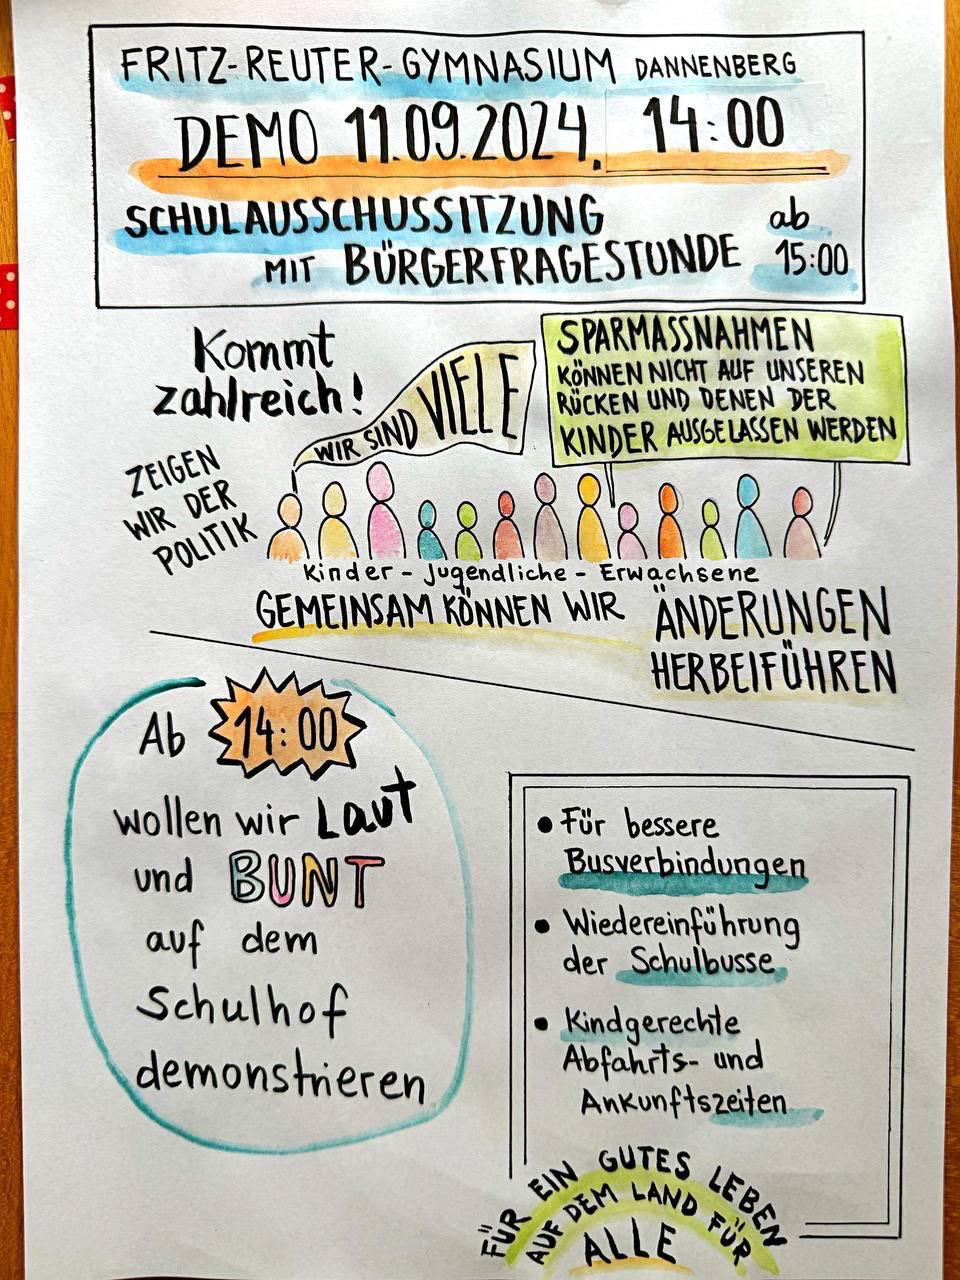 FRITZ-REUTER-GYMNASIUM DANNENBERG
DEMO 11.09.2024. 14:00
SCHULAUSSCHUSSITZUNG ab
MIT BÜRGERFRAGESTUNDE 15:00
Kommt
zahlreich!
ZEIGEN
WIR DER
POLITIK
WIR SIND VIELE
SPARMASSNAHMEN
KÖNNEN NICHT AUF UNSEREN
RÜCKEN UND DENEN DER
KINDER AUSGELASSEN WERDEN
Kinder - Jugendliche - Erwachsene
GEMEINSAM KÖNNEN WIR ÄNDERUNGEN
HERBEIFÜHREN
Ab 14:00
wollen wir LAUT
und BUNT
auf dem
Schulhof
demonstrieren
• Für bessere
Busverbindungen
• Wiedereinführung
der Schulbusse
• Kindgerechte
Abfahrts- und
Ankunftszeiten
FÜR EIN GUTES LEBEN
AUF DEM LAND FÜR
ALLE